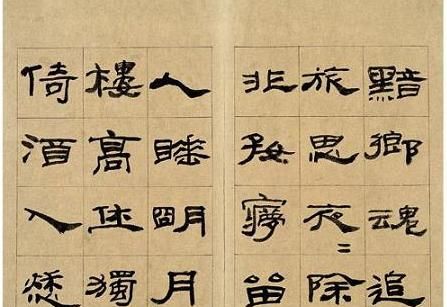 黯鄉魂追
旅思夜〻除
非好夢留
人睡明月
樓高休獨
倚酒入愁